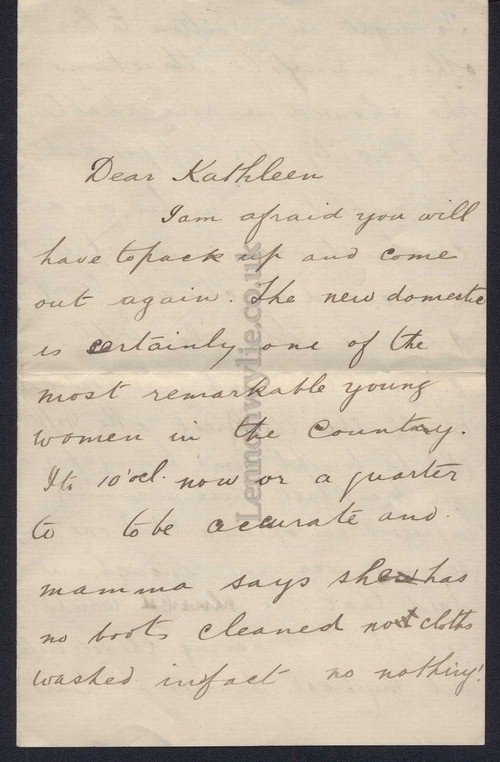 Dear Kathleen
I am afraid you will
have to pack up and come
out again. The new domestic
is certainly one of the
most remarkable young
women in the Country.
Its 10 'ocl. now or a quarter
to to be accurate and
mamma says she has
no boots cleaned not cloths
washed infact no nothing!
Lennonwylie.co.uk